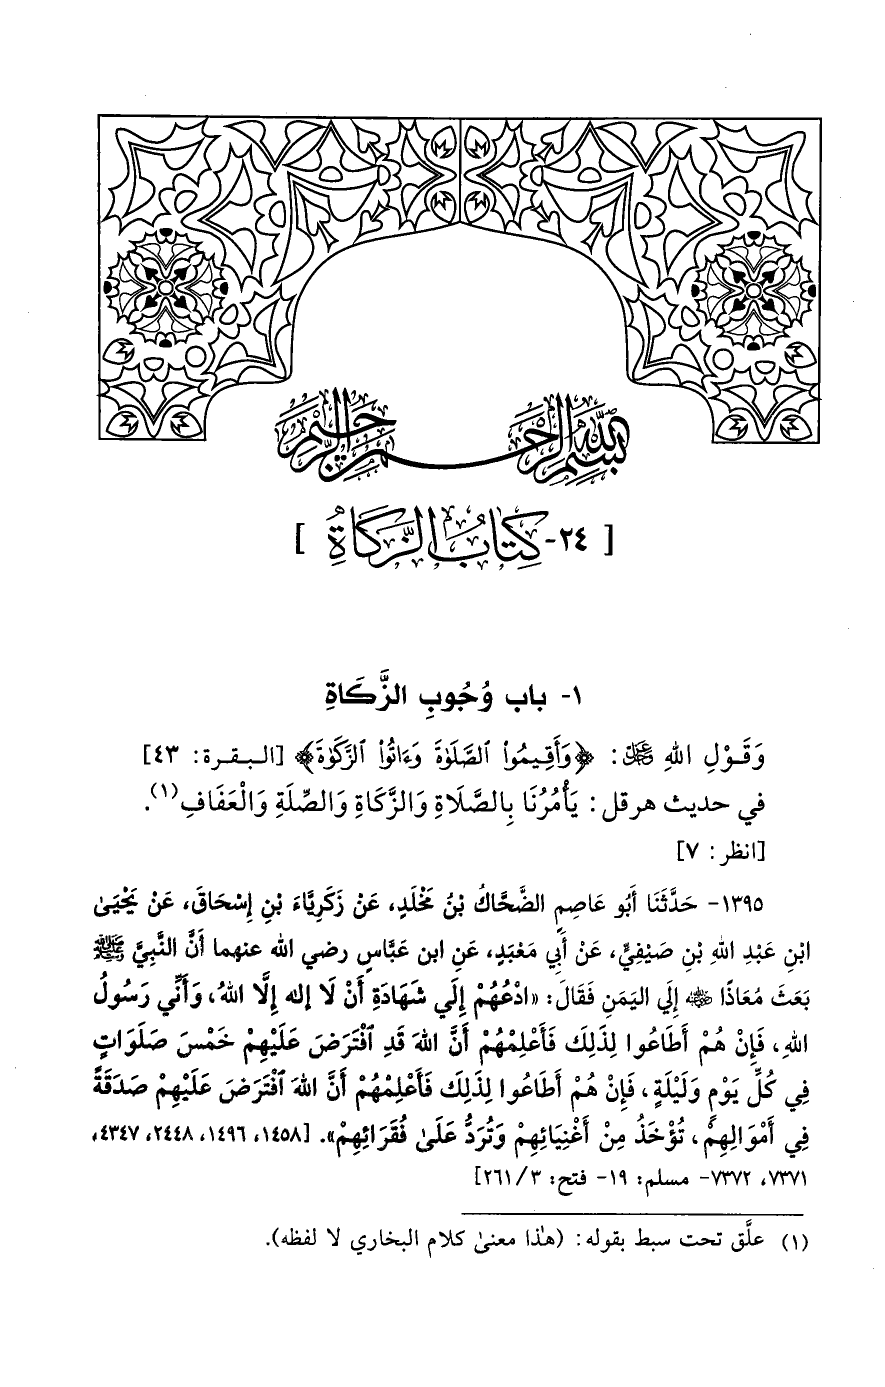 بسم الله الرحمن الرحيم
[ ٢٤- كِتَابُ الزَّكَاةِ ]
١- باب وُجُوبِ الزَّكَاةِ
وَقَوْلِ اللهِ ﷻ: ﴿وَأَقِيمُواْ ٱلصَّلَوٰةَ وَءَاتُواْ ٱلزَّكَوٰةَ﴾ [البقرة: ٤٣]
في حديث هرقل: يَأْمُرُنَا بِالصَّلَاةِ وَالزَّكَاةِ وَالصِّلَةِ وَالْعَفَافِ(١).
[انظر: ٧]
١٣٩٥- حَدَّثَنَا أَبُو عَاصِمٍ الضَّحَّاكُ بْنُ مَخْلَدٍ، عَنْ زَكَرِيَّاءَ بْنِ إِسْحَاقَ، عَنْ يَحْيَىٰ
ابْنِ عَبْدِ اللهِ بْنِ صَيْفِيٍّ، عَنْ أَبِي مَعْبَدٍ، عَنِ ابن عَبَّاسٍ رضي الله عنهما أَنَّ النَّبِيَّ ﷺ
بَعَثَ مُعَاذًا رضي الله عنه إِلَي اليَمَنِ فَقَالَ: «ادْعُهُمْ إِلَي شَهَادَةِ أَنْ لَا إله إِلَّا اللهُ، وَأَنِّي رَسُولُ
اللهِ، فَإِنْ هُمْ أَطَاعُوا لِذَلِكَ فَأَعْلِمْهُمْ أَنَّ اللهَ قَدِ ٱفْتَرَضَ عَلَيْهِمْ خَمْسَ صَلَوَاتٍ
فِي كُلِّ يَوْمٍ وَلَيْلَةٍ، فَإِنْ هُمْ أَطَاعُوا لِذَلِكَ فَأَعْلِمْهُمْ أَنَّ اللهَ ٱفْتَرَضَ عَلَيْهِمْ صَدَقَةً
فِي أَمْوَالِهِمْ، تُؤْخَذُ مِنْ أَغْنِيَائِهِمْ وَتُرَدُّ عَلَىٰ فُقَرَائِهِمْ». [١٤٥٨، ١٤٩٦، ٢٤٤٨، ٤٣٤٧،
٧٣٧١، ٧٣٧٢- مسلم: ١٩- فتح: ٣/ ٢٦١]
(١) علَّق تحت سبط بقوله: (هذا معنىٰ كلام البخاري لا لفظه).